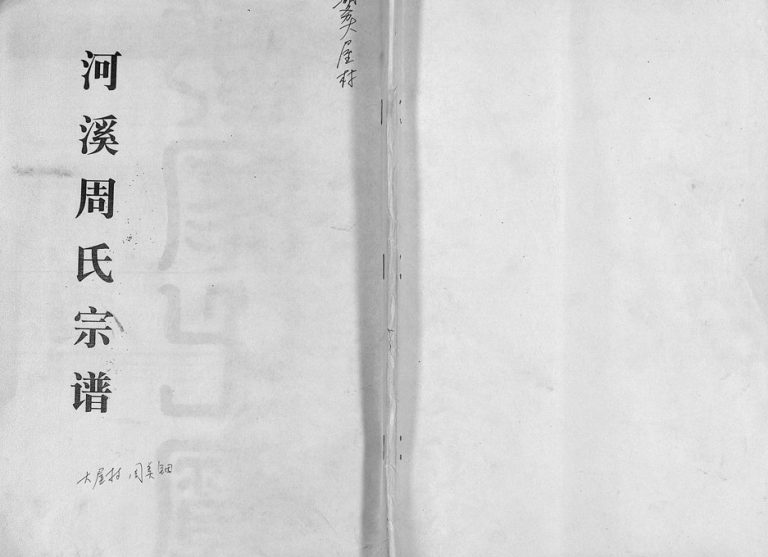 河溪周氏宗谱
大屋村 周美
屋村